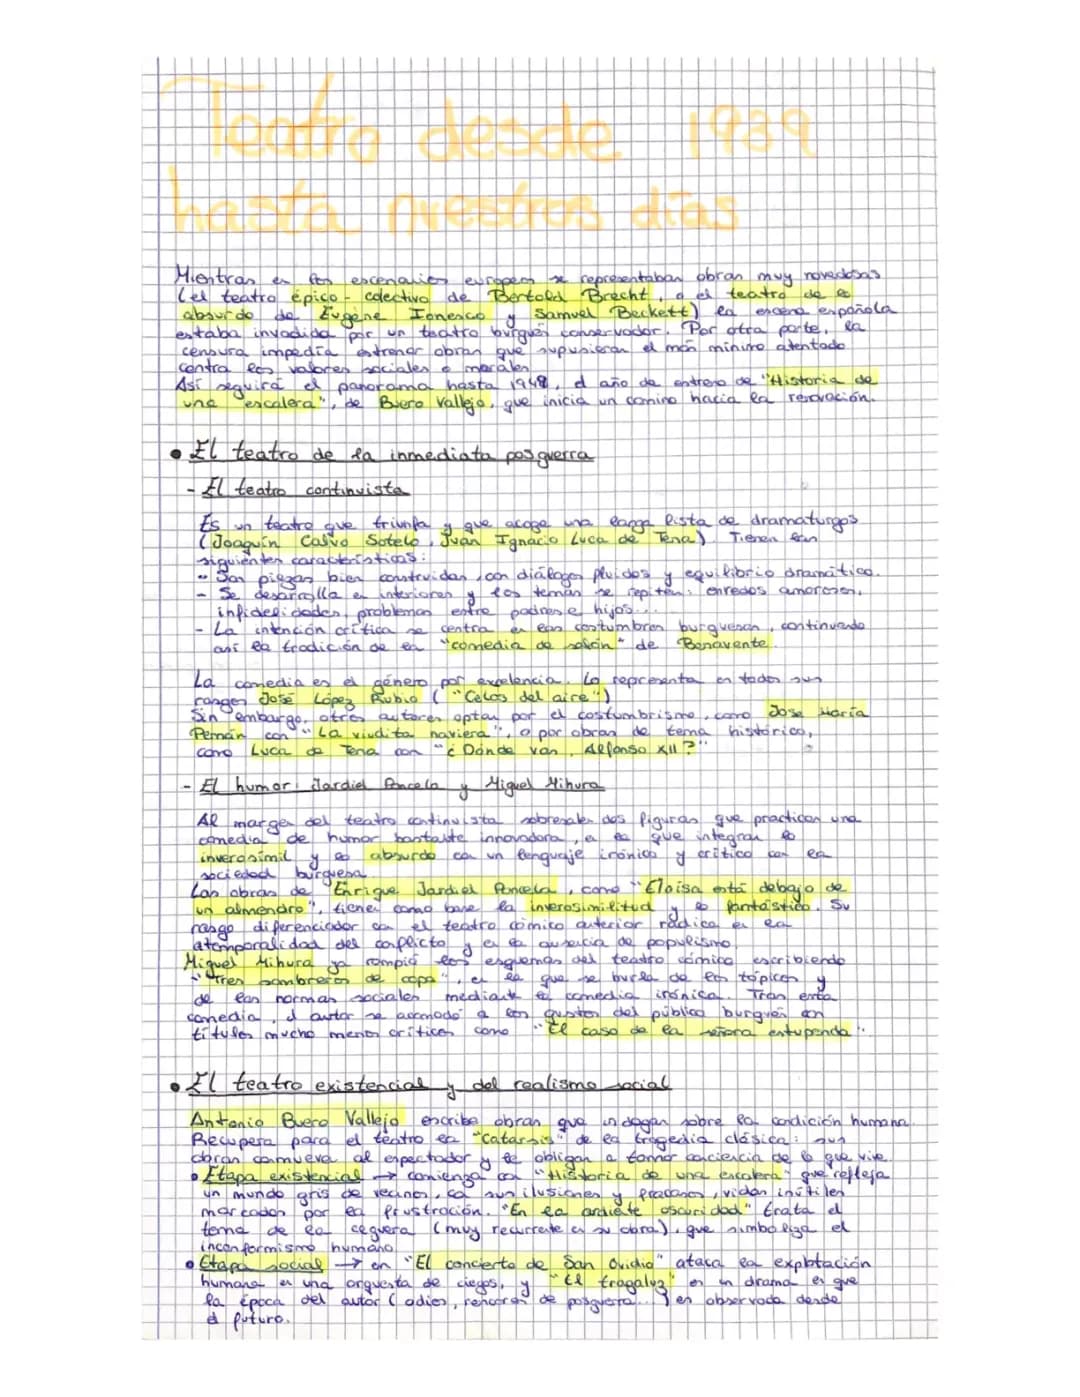 Teatro desde 1939
hasta nuestros días
Mientras en los escenarios europeos se representaban obras muy novedosas
(el teatro épico - colectivo de Bertold Brecht, o el teatro de lo
absurdo de Eugène Ionesco y Samuel Beckett) la escena española
estaba invadida por un teatro burgués conservador. Por otra parte, la
censura impedía estrenar obras que supusieran el más mínimo atentado
contra los valores sociales o morales
Así seguirá el panorama hasta 1948, el año de estreno de "Historia de
una escalera", de Buero Vallejo, que inicia un camino hacia la renovación.
• El teatro de la inmediata posguerra
- El teatro continuista
Es un teatro que triunfa y que acoge una larga lista de dramaturgos
(Joaquín Calvo Sotelo, Juan Ignacio Luca de Tena). Tienen las
siguientes características:
- Son piezas bien construidas, con diálogos fluidos y equilibrio dramático.
- Se desarrolla en interiores y los temas se repiten: enredos amorosos,
infidelidades, problemas entre padres e hijos...
- La intención crítica se centra en las costumbres burguesas, continuando
así la tradición de la "comedia de salón" de Benavente.
La comedia es el género por excelencia. Lo representa en todos sus
rasgos José López Rubio ("Celos del aire")
Sin embargo, otros autores optan por el costumbrismo, como Jose María
Pemán con "La viudita naviera", o por obras de tema histórico,
como Luca de Tena con "¿Dónde vas, Alfonso XII?"
- El humor: Jardiel Poncela y Miguel Mihura
Al margen del teatro continuista sobresalen dos figuras que practican una
comedia de humor bastante innovadora, en la que integran lo
inverosímil y lo absurdo con un lenguaje irónico y crítico con la
sociedad burguesa
Las obras de Enrique Jardiel Poncela, como "Eloísa está debajo de
un almendro", tienen como base la inverosimilitud y lo fantástico. Su
rasgo diferenciador con el teatro cómico anterior radica en la
atemporalidad del conflicto y en la ausencia de populismo
Miguel Mihura ya rompió los esquemas del teatro cómico escribiendo
"Tres sombreros de copa", en la que se burla de los tópicos y
de las normas sociales mediante la comedia irónica. Tras esta
comedia, el autor se acomodó a los gustos del público burgués con
títulos mucho menos críticos como "El caso de la señora estupenda".
• El teatro existencial y del realismo social
Antonio Buero Vallejo escribe obras que indagan sobre la condición humana.
Recupera para el teatro la "catarsis" de la tragedia clásica: sus
obras conmueven al espectador y le obligan a tomar conciencia de lo que vive.
• Etapa existencial → comienza con "Historia de una escalera" que refleja
un mundo gris de vecinos, con sus ilusiones y fracasos, vidas inútiles
marcadas por la frustración. "En la ardiente oscuridad" trata el
tema de la ceguera (muy recurrente en su obra), que simboliza el
inconformismo humano
• Etapa social → en "El concierto de San Ovidio" ataca la explotación
humana en una orquesta de ciegos, y "El tragaluz" es un drama en que
la época del autor (odios, rencores de posguerra...) es observada desde
el futuro.